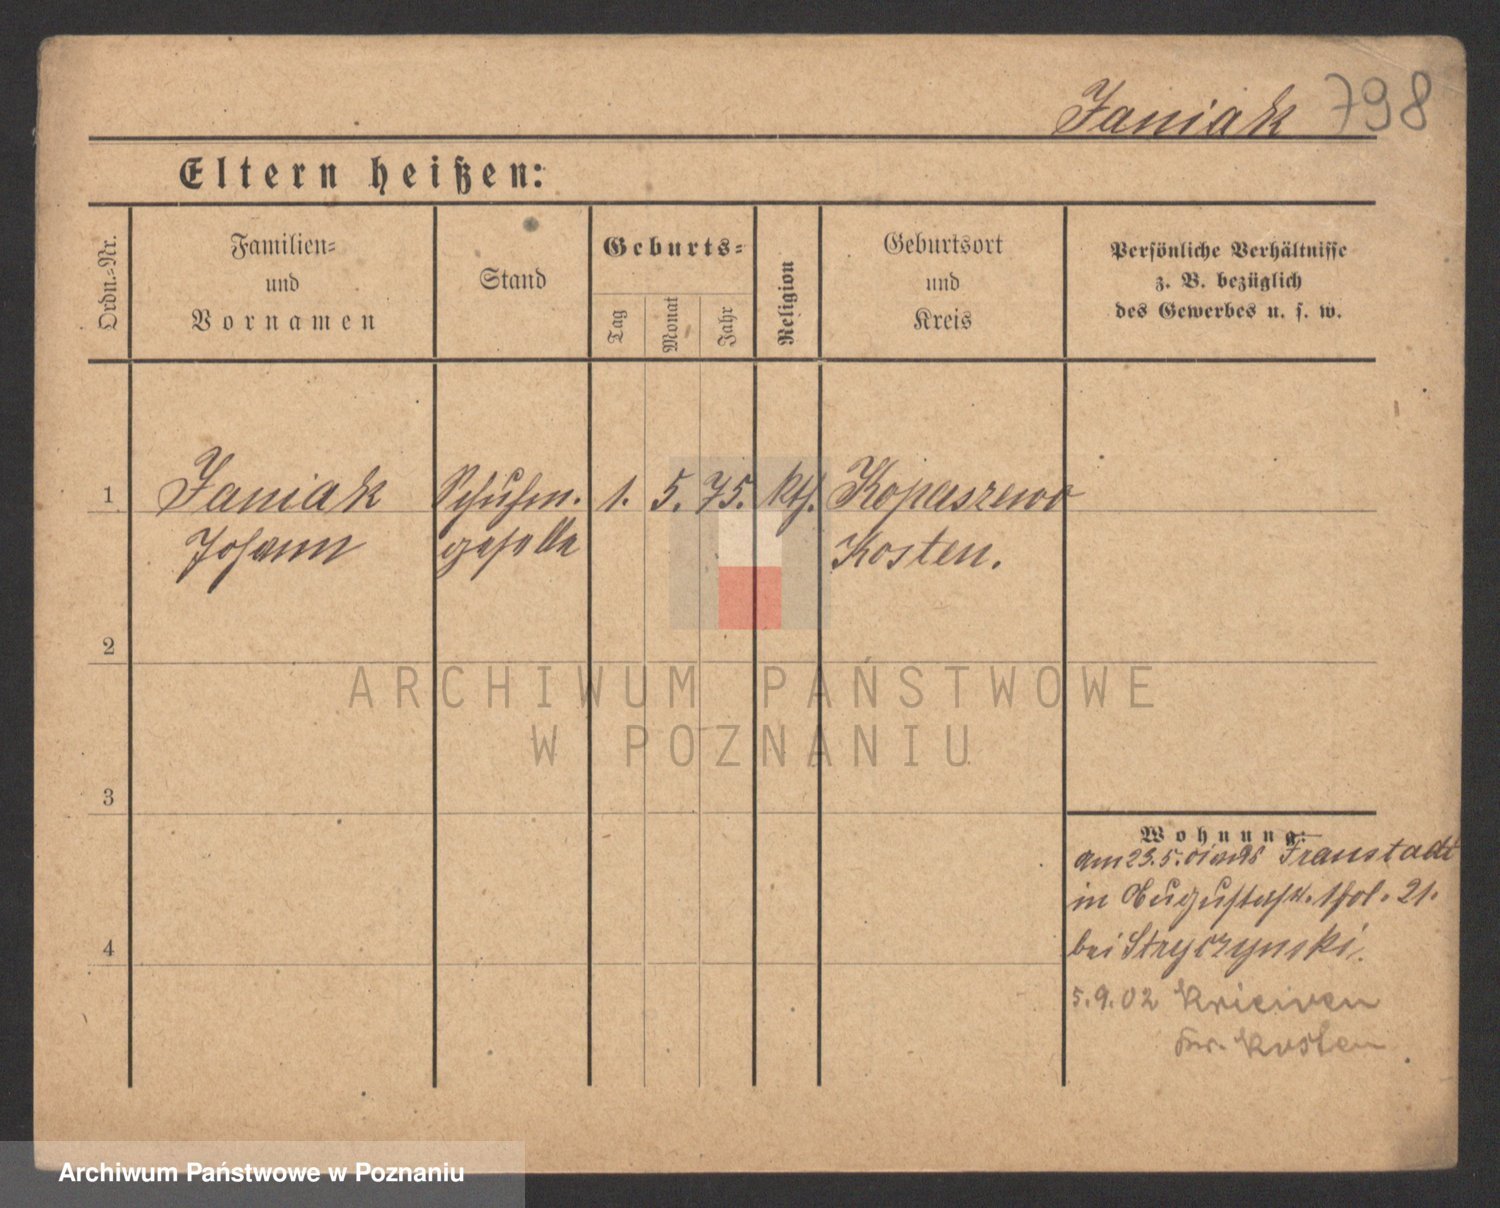 Janiak 798
Eltern heißen:
Ordn.-Nr.
Familien-
und
Vornamen
Stand
Geburts-
Tag
Monat
Jahr
Religion
Geburtsort
und
Kreis
Persönliche Verhältnisse
z. B. bezüglich
des Gewerbes u. s. w.
1 Janiak Schuhm. 1. 5. 75. kth. Kopaszewo
Johann geselle Kosten.
2
ARCHIWUM PAŃSTWOWE
W POZNANIU
3
Wohnung:
am 23.5.01 aus Fraustadt
in 21.
bei Stryczynski.
4
5.9.02 Kriewen
Kr. Kosten
Archiwum Państwowe w Poznaniu